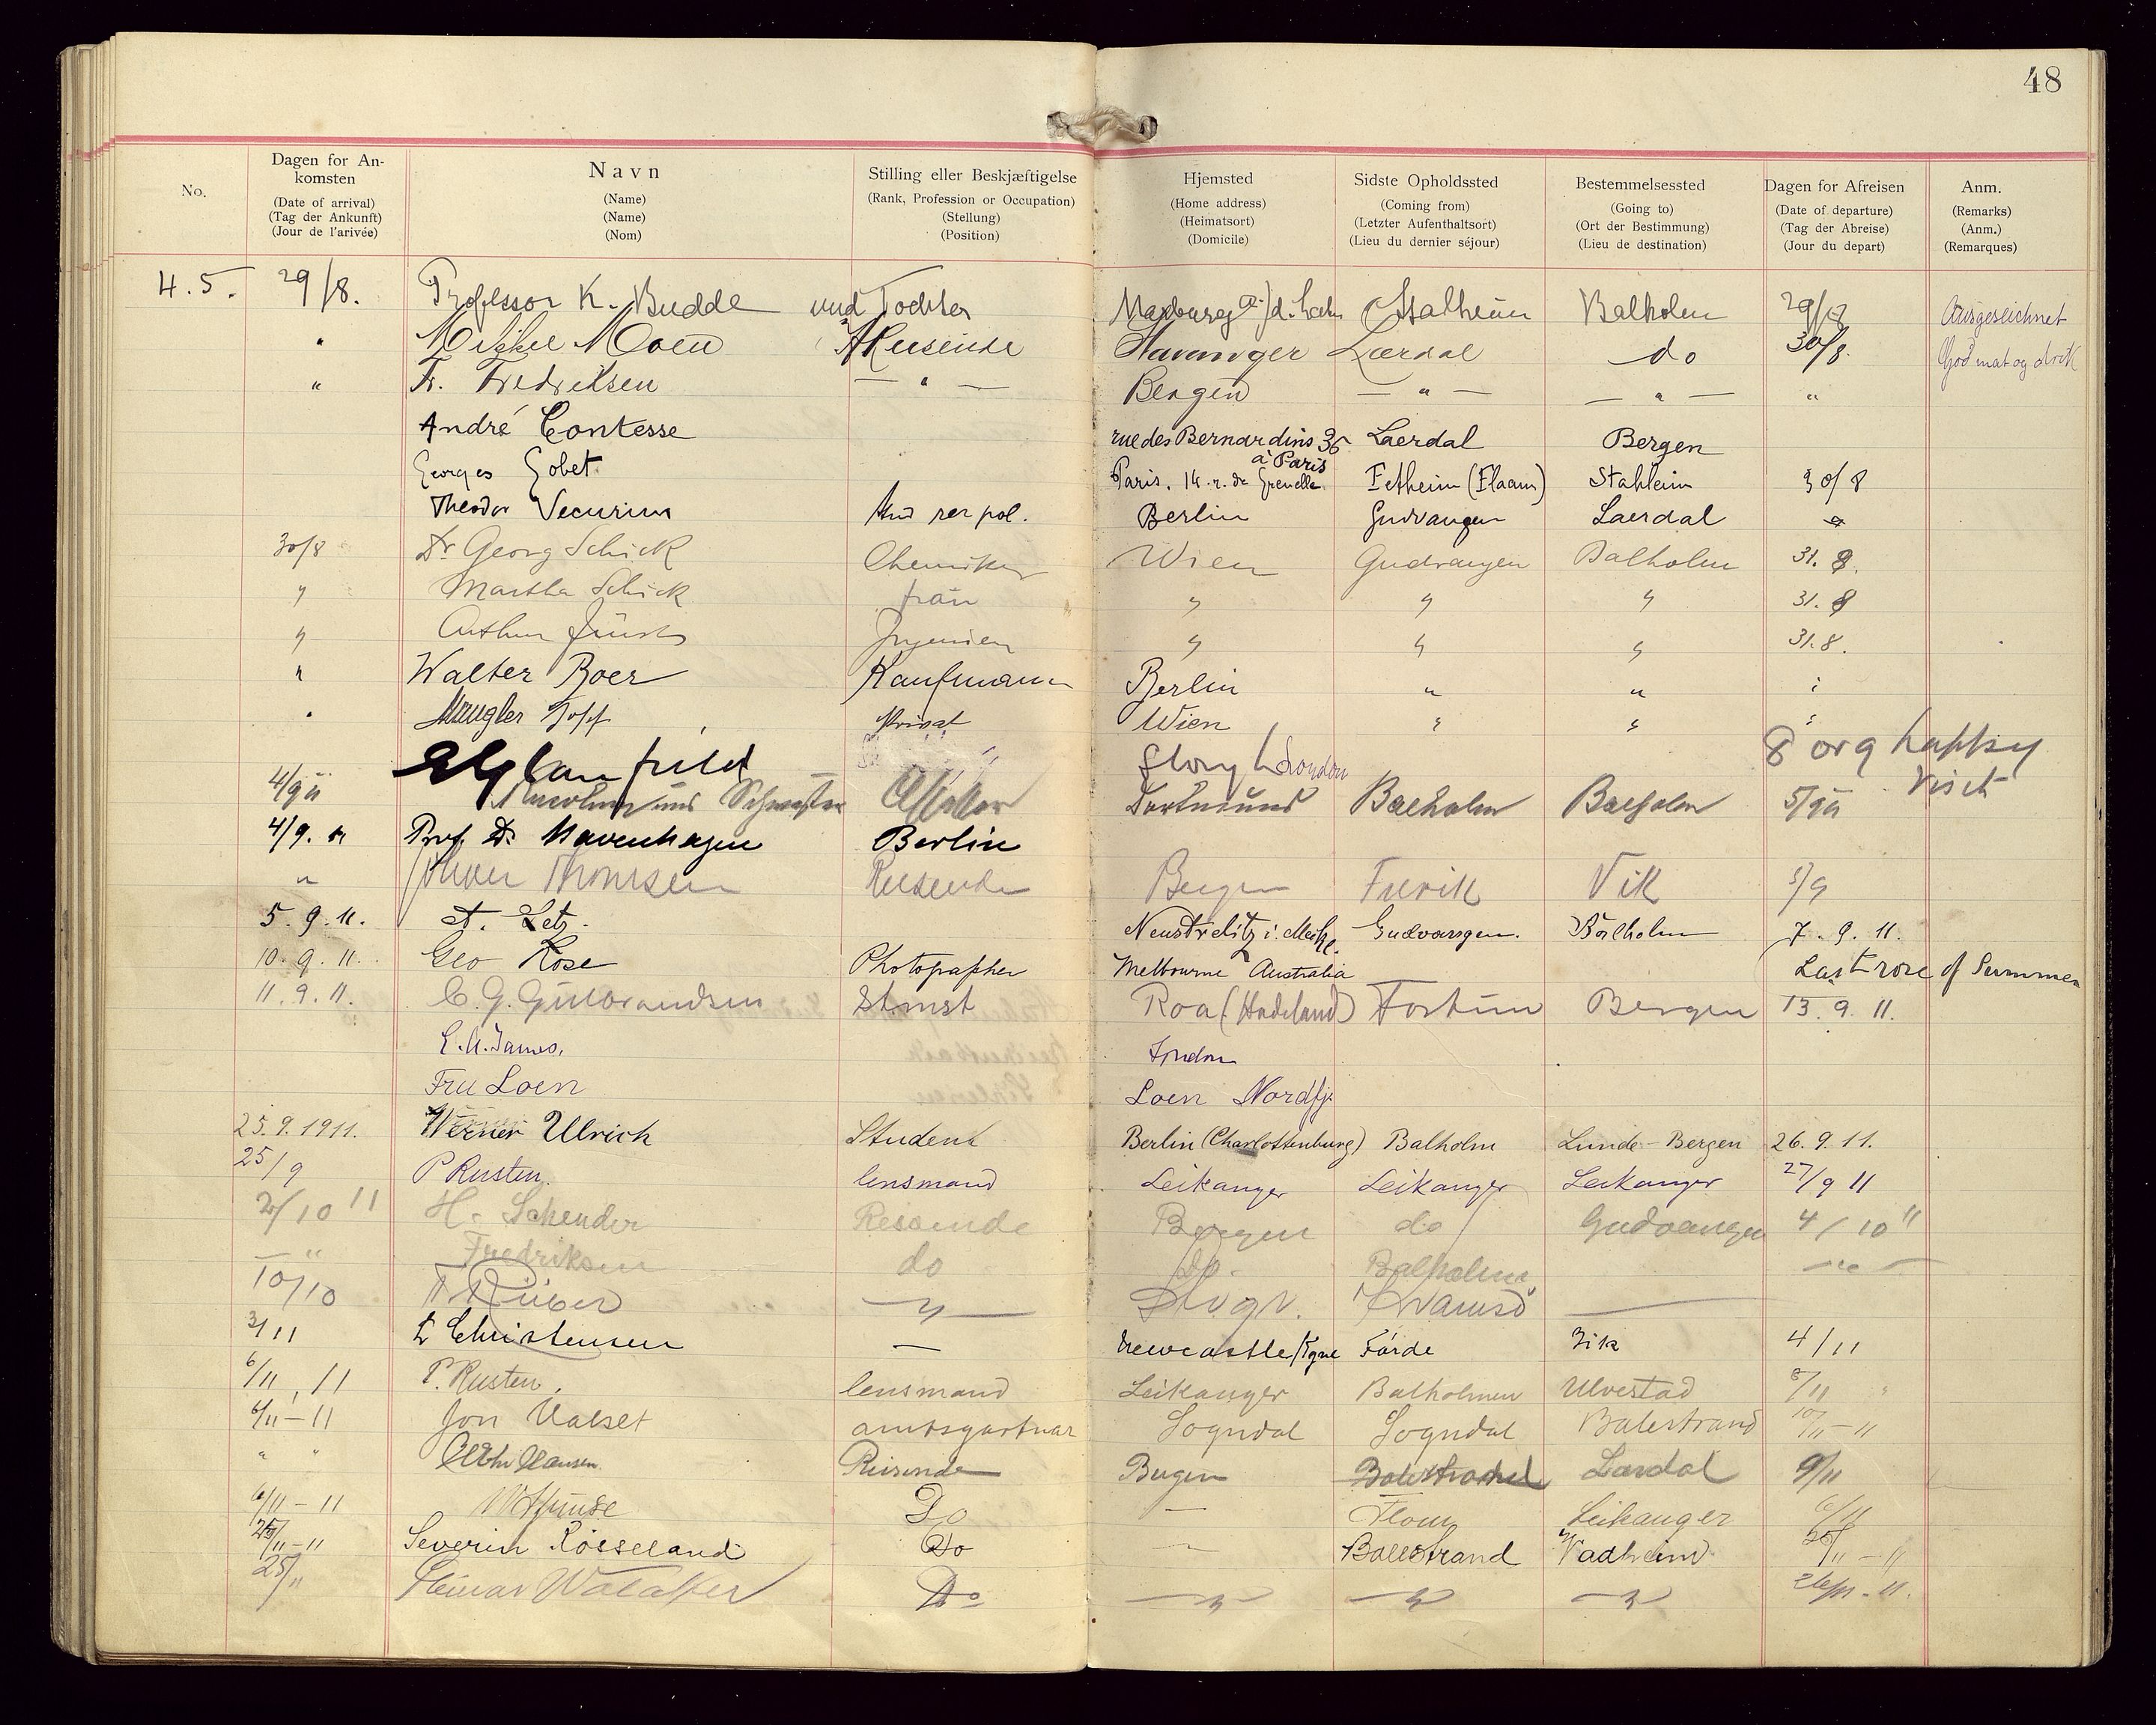 48
No.
Dagen for An-
komsten
(Date of arrival)
(Tag der Ankunft)
(Jour de l'arivée)
Navn
(Name)
(Name)
(Nom)
Stilling eller Beskjæftigelse
(Rank, Profession or Occupation)
(Stellung)
(Position)
Hjemsted
(Home address)
(Heimatsort)
(Domicile)
Sidste Opholdssted
(Coming from)
(Letzter Aufenthaltsort)
(Lieu du dernier séjour)
Bestemmelsessted
(Going to)
(Ort der Bestimmung)
(Lieu de destination)
Dagen for Afreisen
(Date of departure)
(Tag der Abreise)
(Jour du depart)
Anm.
(Remarks)
(Anm.)
(Remarques)
4.5. 29/8. Professor K. Budde und Tochter Marburg a/d. Lahn Stalheim Balholm 29/8 Ausgezeichnet
" Mikkel Moen Reisende Stavanger Lærdal do 30/8. God mat og drik
" Fr. Fredriksen — " — Bergen — " — — " — "
André Contesse rue des Bernardins 35 à Paris Laerdal Bergen
Georges Gobet Paris. 14. r. de Grenelle Fetheim (Flaam) Stahleim 30/8
Theodor rer pol. Berlin Gudvangen Laerdal
30/8 Dr Georg Schick Chemiker Wien Gudvangen Balholm 31. 8.
" Martha Schick frau " " " 31. 8
" Arthur " " " 31.8.
" Walter Boer Kaufmann Berlin " " "
" Privat Wien " " "
London 8 org happy
visit
4/9 11 und Schwester Dortmund Balholm Balholm 5/9 11
4/9. 11 Prof. Dr. Berlin
" Thomsen Reisende Bergen Vik 5/9
5. 9. 11. A. Letz. Neustrelitz i. Meckl. Gudvangen. Balholm 7. 9. 11.
10. 9. 11. Geo Rose Photographer Melbourne Australia Last rose of Summer
11. 9. 11. C. G. Gulbrandsen Stmst Roa (Hadeland) Fortun Bergen 13. 9. 11.
James. London
Fru Loen Loen Nordfj.
25.9.1911. Werner Ulrich Student Berlin (Charlottenburg) Balholm Lunde-Bergen 26. 9. 11.
25/9 P Rusten. lensmand Leikanger Leikanger Leikanger 27/9 11
2/10 11 H. Schender Reisende Bergen do Gudvangen 4/10 11
— " Fredriksen do do. Balholm — " —
10/10 — " — Kvamsö
3/11 Christensen — Newcastle/Tyne Förde Vik 4/11
6/11, 11 P. Rusten. lensmand Leikanger Balholmen Ulvestad 8/11 "
6/11 - 11 Jon amtsgartnar Sogndal Sogndal Balestrand 10/11 - 11
" " Hansen Reisende Bergen Balestrand Lærdal 9/11
6/11 - 11 Do — Flom Leikanger 6/11
25/11 - 11 Severin Rösseland Do — Balestrand Vadheim
25/11 Do — " — — " — — " — 26/11 - 11.